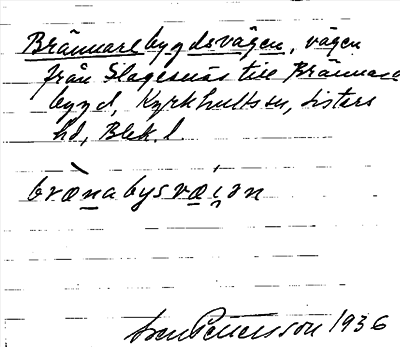 Brännarebygdsvägen, vägen
från Slagesnäs till Brännare
bygd, Kyrkhults sn, Listers
hd, Blek. l.
brænabysvæiən
Sven Pettersson 1936